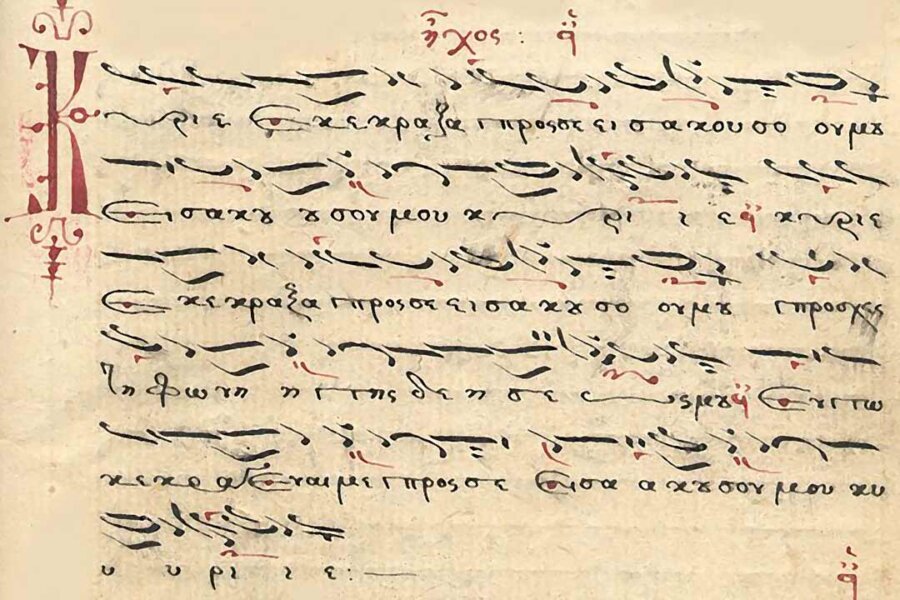 ἦχος: 
Κύριε Εκεκραξα προςσε εισακουσο ουμȣ
Εισακȣ ȣσουμου κυρι ι ε κυριε
Εκεκραξα προςσε εισακȣσο ουμȣ προσχες
τη φωνη η της δεησε ωςμȣ Εντω
κεκραγεναιμε προςσε Εισα ακȣσουμου κυ
υ υ ρι ι ε: